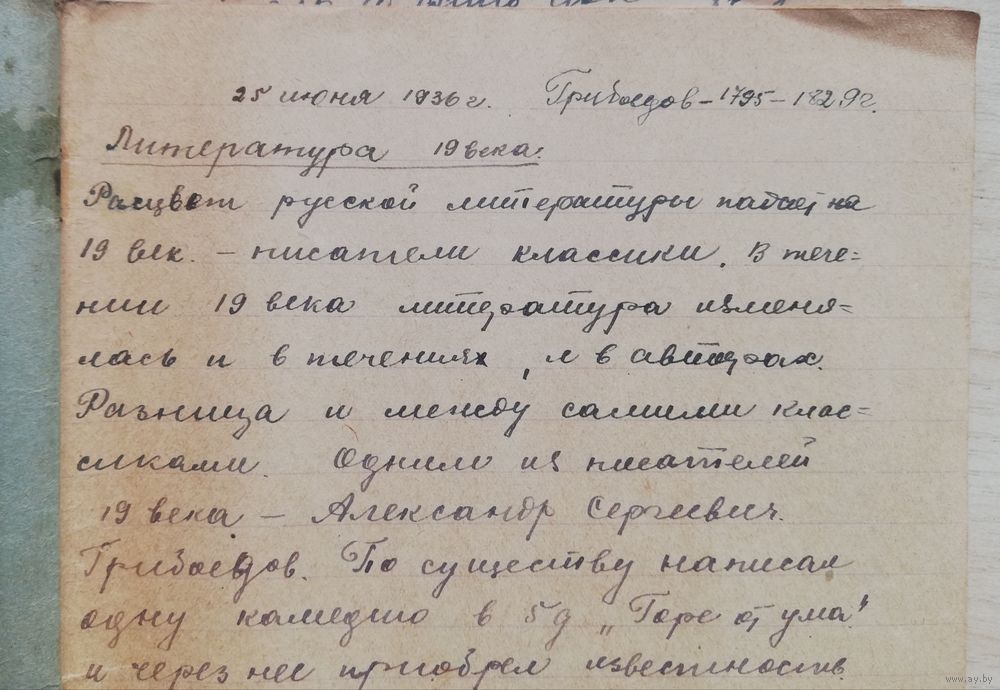 25 июня 1936 г. Грибоедов – 1795 – 1829 г.
Литература 19 века.
Расцвет русской литературы падает на
19 век. – писатели классики. В тече=
нии 19 века литература изменя=
лась и в течениях, и в авторах.
Разница и между самими клас=
сиками. Одним из писателей
19 века – Александр Сергиевич
Грибоедов. По существу написал
одну камедию в 5 д „Горе от ума"
и через нее приобрел известность.
www.ay.by